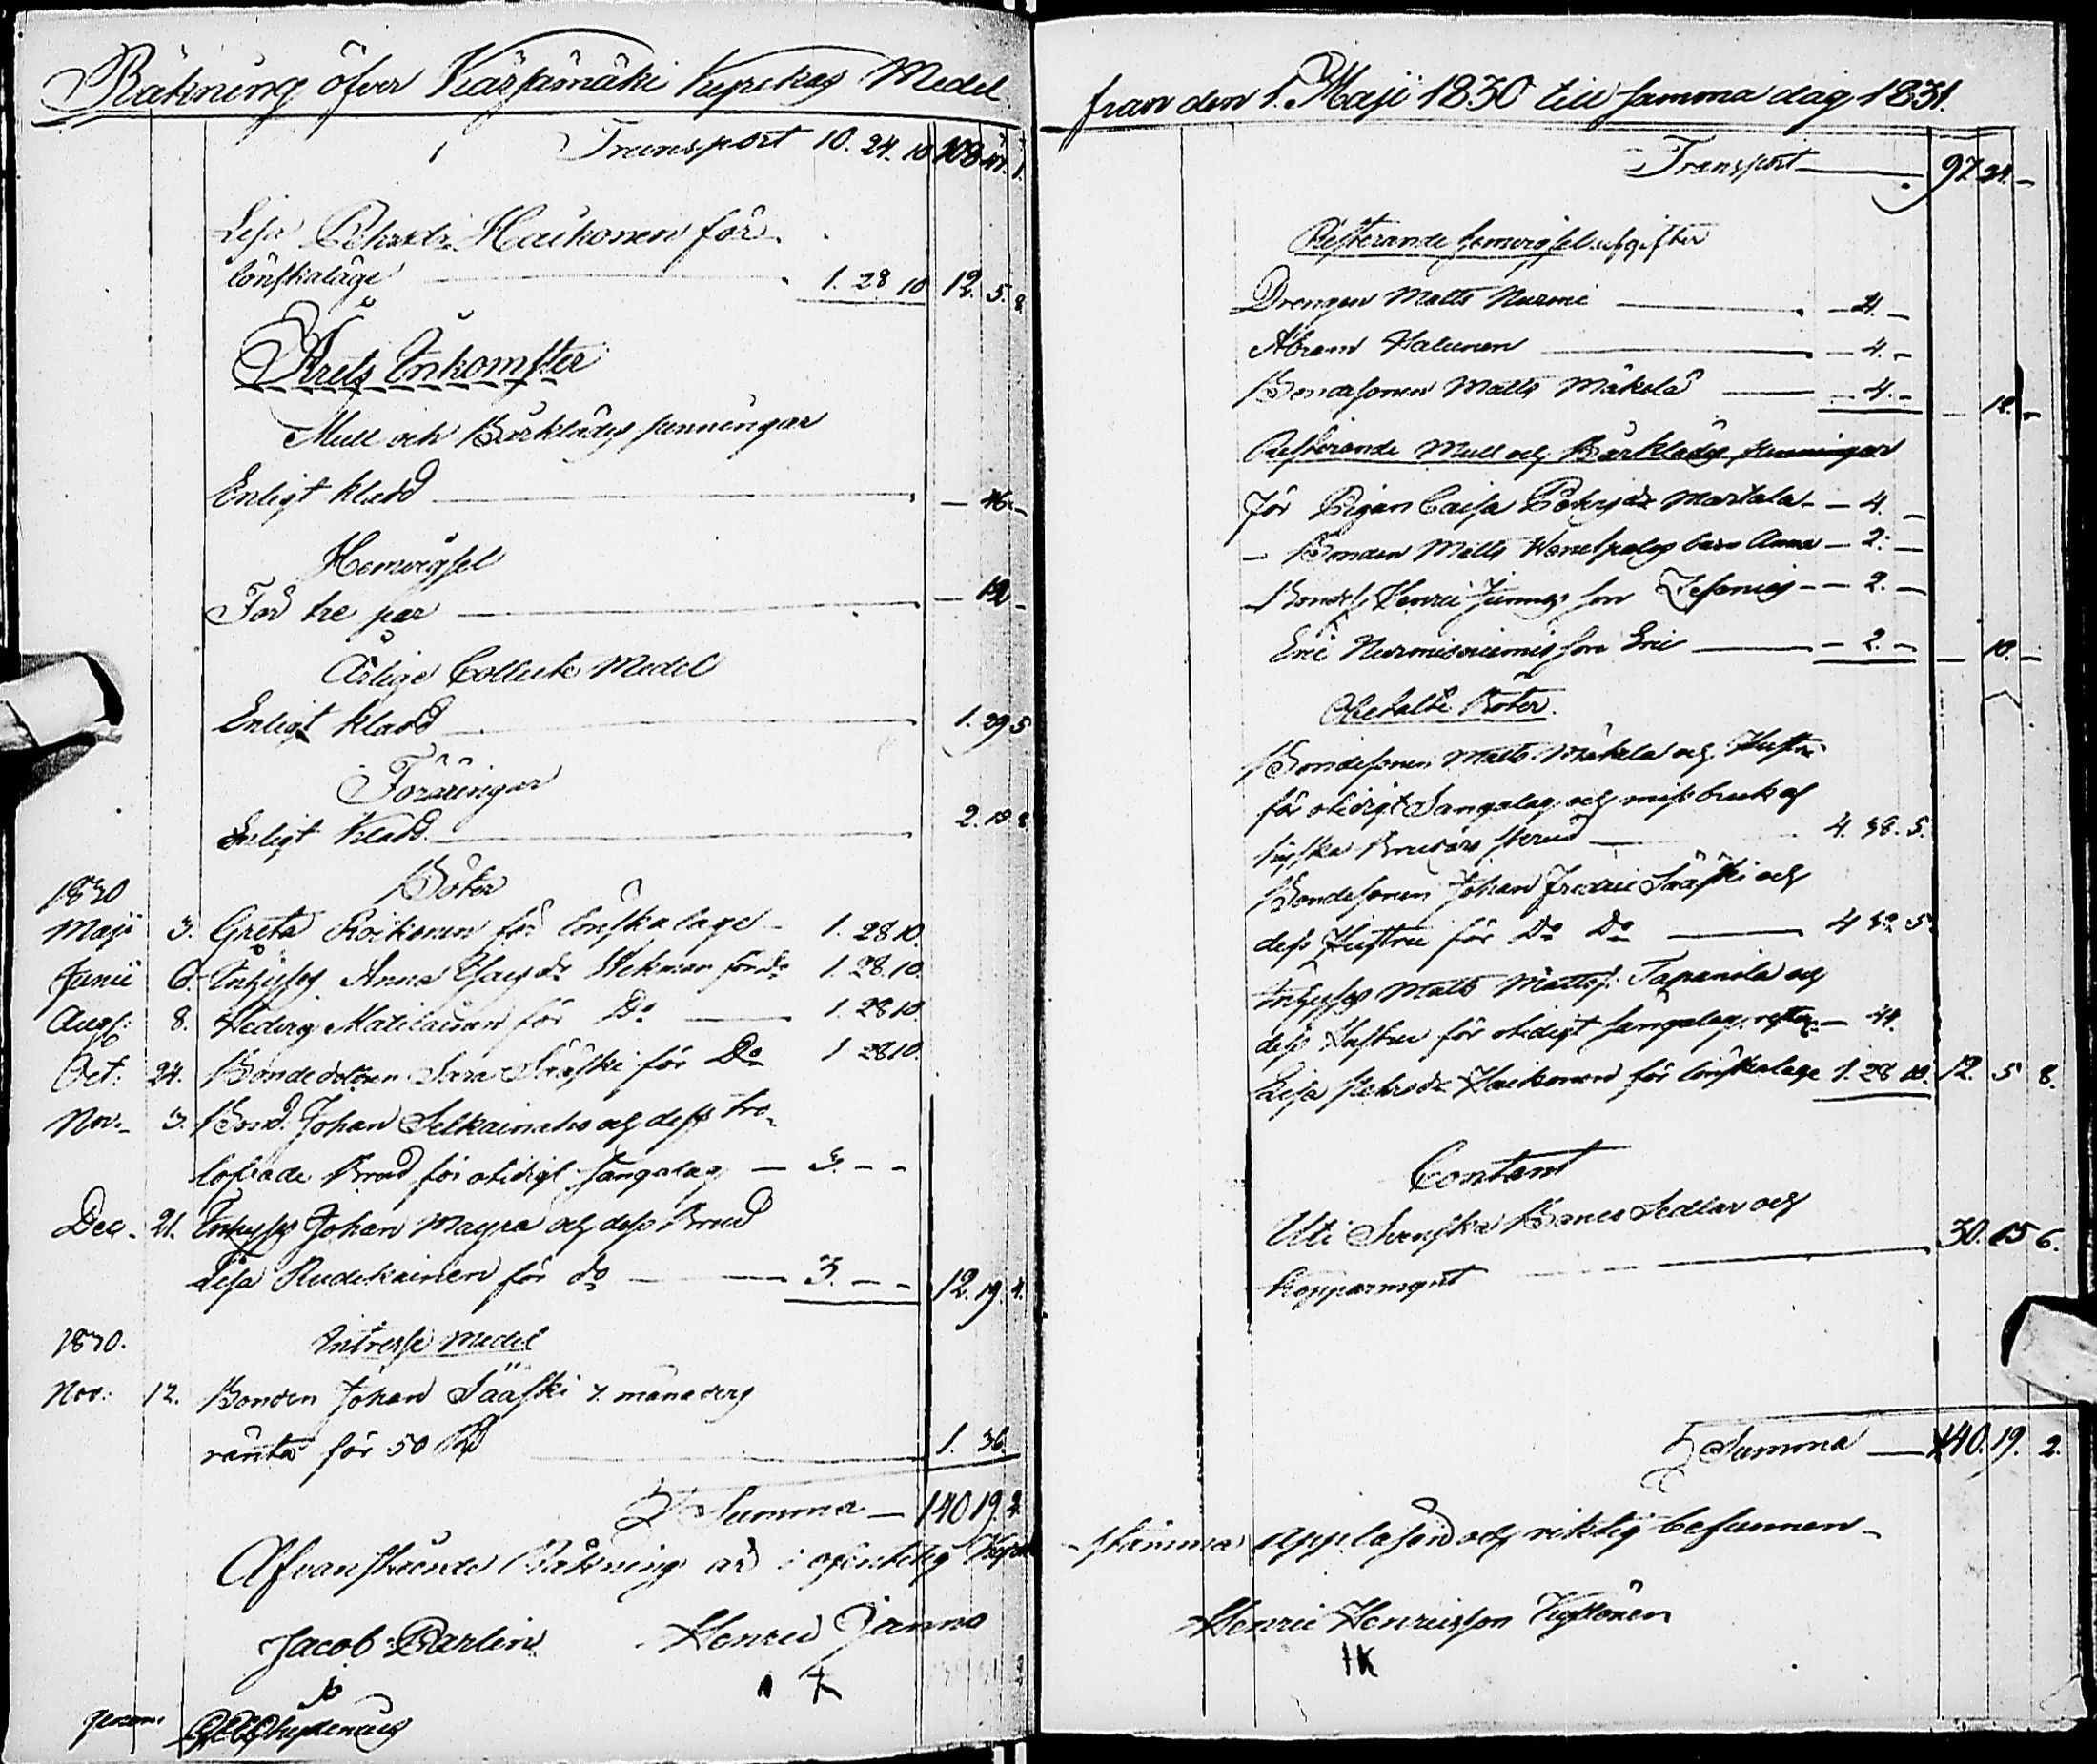 Räkning öfver Kärsämäki Kyrckas Medel
Transport 10. 24. 10 108 47. 1.
Lisa Pehrsdr Haikonen för
lönskaläge 1. 28 10. 12. 5. 8
Årets Inkomster
Mull och Bårklädes penningar
Enligt kladd — 46. —
Hemvigsel
För tre par — 12 —
Årlige Collect Medel
Enligt kladd 1. 29 5
Föräringar
Enligt Kladd 2. 10. 8
Böter
1830
Maji 3. Greta Roikonen för lönskalage 1. 28 10.
Junii 6. Inhyses Anna Isacsdr Hekman för do 1. 28. 10
Aug: 8. Hedvig Matilainen för Do 1. 28 10.
Oct: 24. Bondedottren Sara Sääski för Do 1 28 10.
Nov. 3. Bond. Johan Selkäinaho och dess tro-
lofvade Brud för otidigt sängalag — 3. — —
Dec. 21. Inhyses Johan Mayra och dess Brud
Lisa Rudukainen för do 3. — — 12. 19. 4.
1830. Intresse Medel
Nov: 12. Bonden Johan Sääski 7. månaders
ränta för 50 Rd 1. 36.
Summa — 140 19. 2
Afvanstående Räkning är i ofentelig Kyrck
Jacob Parlin Henric Janns
genom
från den 1. Maji 1830 till samma dag 1831.
Transport 97. 24. —
Resterande hemvigsel afgifter
Drengen Matts Nurmi — 4. —
Abram Halunen — 4. —
Bondesonen Matts Mäkelä — 4. — — 12. —
Resterande Mull och Bårklädes penningar
För Pigan Caisa Pehrsdr Martala — 4. —
— Bonden Matts barn Anna — 2. —
Bonden Henric Junnes son Zefanias — 2. —
Eric Nurmesniemis son Eric — 2. — — 10. —
Obetalte Böter.
Bondesonen Matts Mäkelä och Hustru
för otidigt Sängalag och missbruk af
Brud 4. 38. 5.
Bondesonen Johan Fredric Sääski och
dess Hustru för Do Do 4 38. 5.
Inhyses Matts Mattss: Tapanila och
dess Hustru för otidigt sängalag — 44.
Lisa Pehrsdr Haikonen för lönskalage 1. 28 10. 12. 5 8.
Contant
Uti Svenska Banco Sedlar och
Kopparmynt 30. 15 6.
Summa — 140. 19. 2.
stämma uppläsen och riktig befunnen
Henric Henricsson Kyllönen
IK